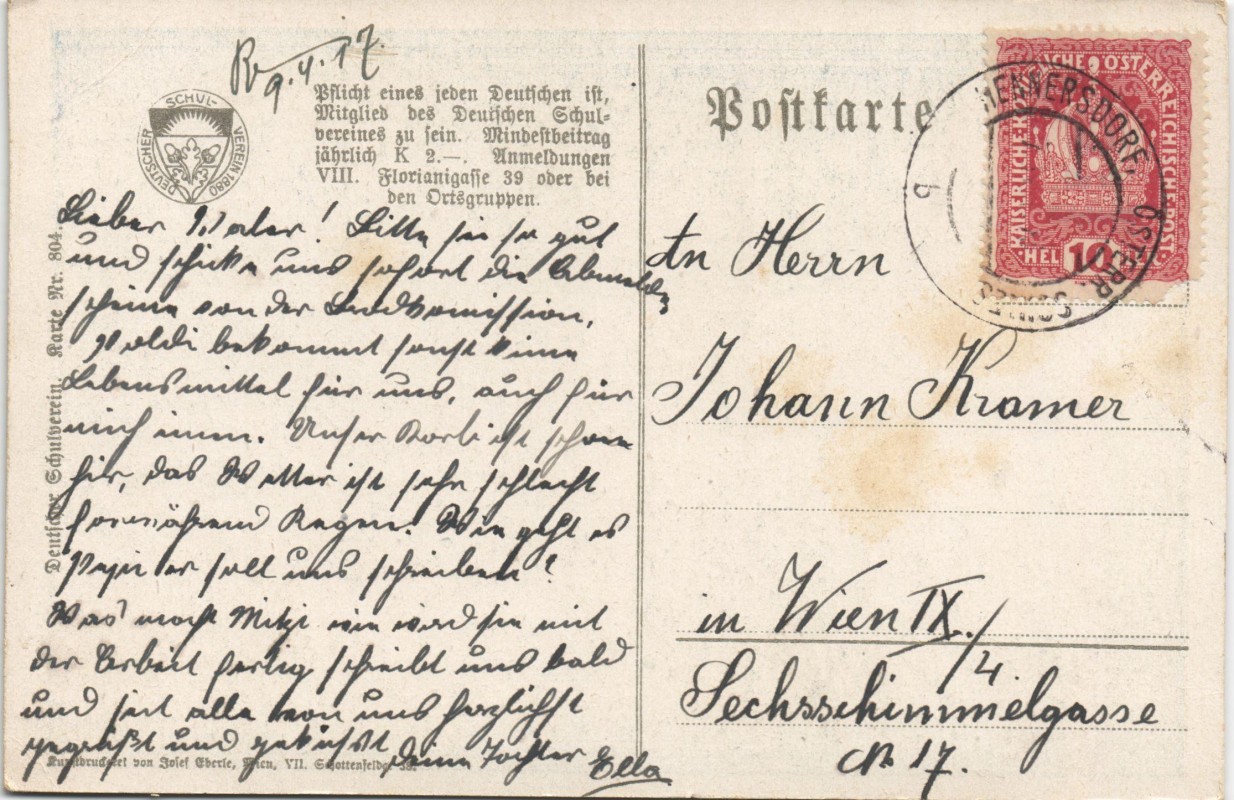 R 9.4.17.
Pflicht eines jeden Deutschen ist,
Mitglied des Deutschen Schul-
vereines zu sein. Mindestbeitrag
jährlich K 2.—. Anmeldungen
VIII. Florianigasse 39 oder bei
den Ortsgruppen.
DEUTSCHER SCHUL-VEREIN 1880
Deutscher Schulverein. Karte Nr. 804.
Lieber Vater! Bitte sei so gut
und schicke uns sofort die
scheine von der
Poldi bekommt sonst keine
Lebensmittel für uns, auch für
mich nimm. Unser Korb ist schon
hir, das Wetter ist sehr schlecht
fortwährend Regen. Wie geht es
er soll uns schreiben!
Was macht Mitzi wie wird sie mit
der Arbeit fertig schreibt uns bald
und seit alle von uns herzlichst
gegrüßt und geküsst deine Tochter Ella
Kunstdruckerei von Josef Eberle, Wien, VII. Schottenfeldg. 38.
Postkarte
KAISERLICHE KÖNIGLICHE ÖSTERREICHISCHE POST
HEL 10
HENNERSDORF, ÖSTERR. SCHLES
An Herrn
Johann Kramer
in Wien IX./4
Sechsschimmelgasse
No 17.